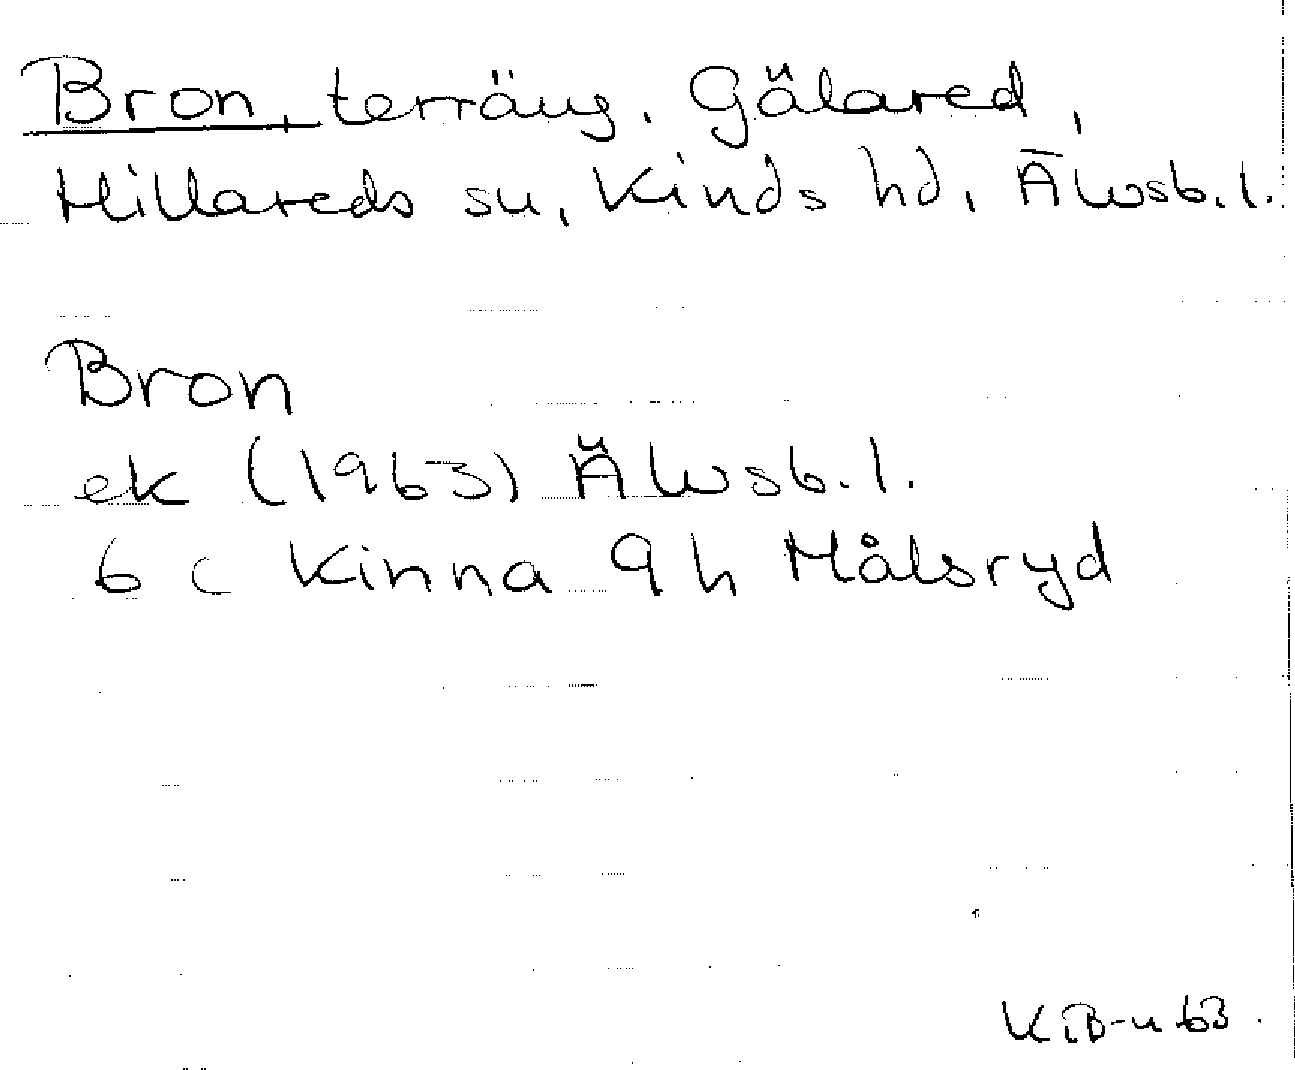 Bron, terräng, Gälared,
Hillareds sn, Kinds hd, Älvsb. l.
Bron
ek (1963) Älvsb. l.
6 c Kinna 9 h Målsryd